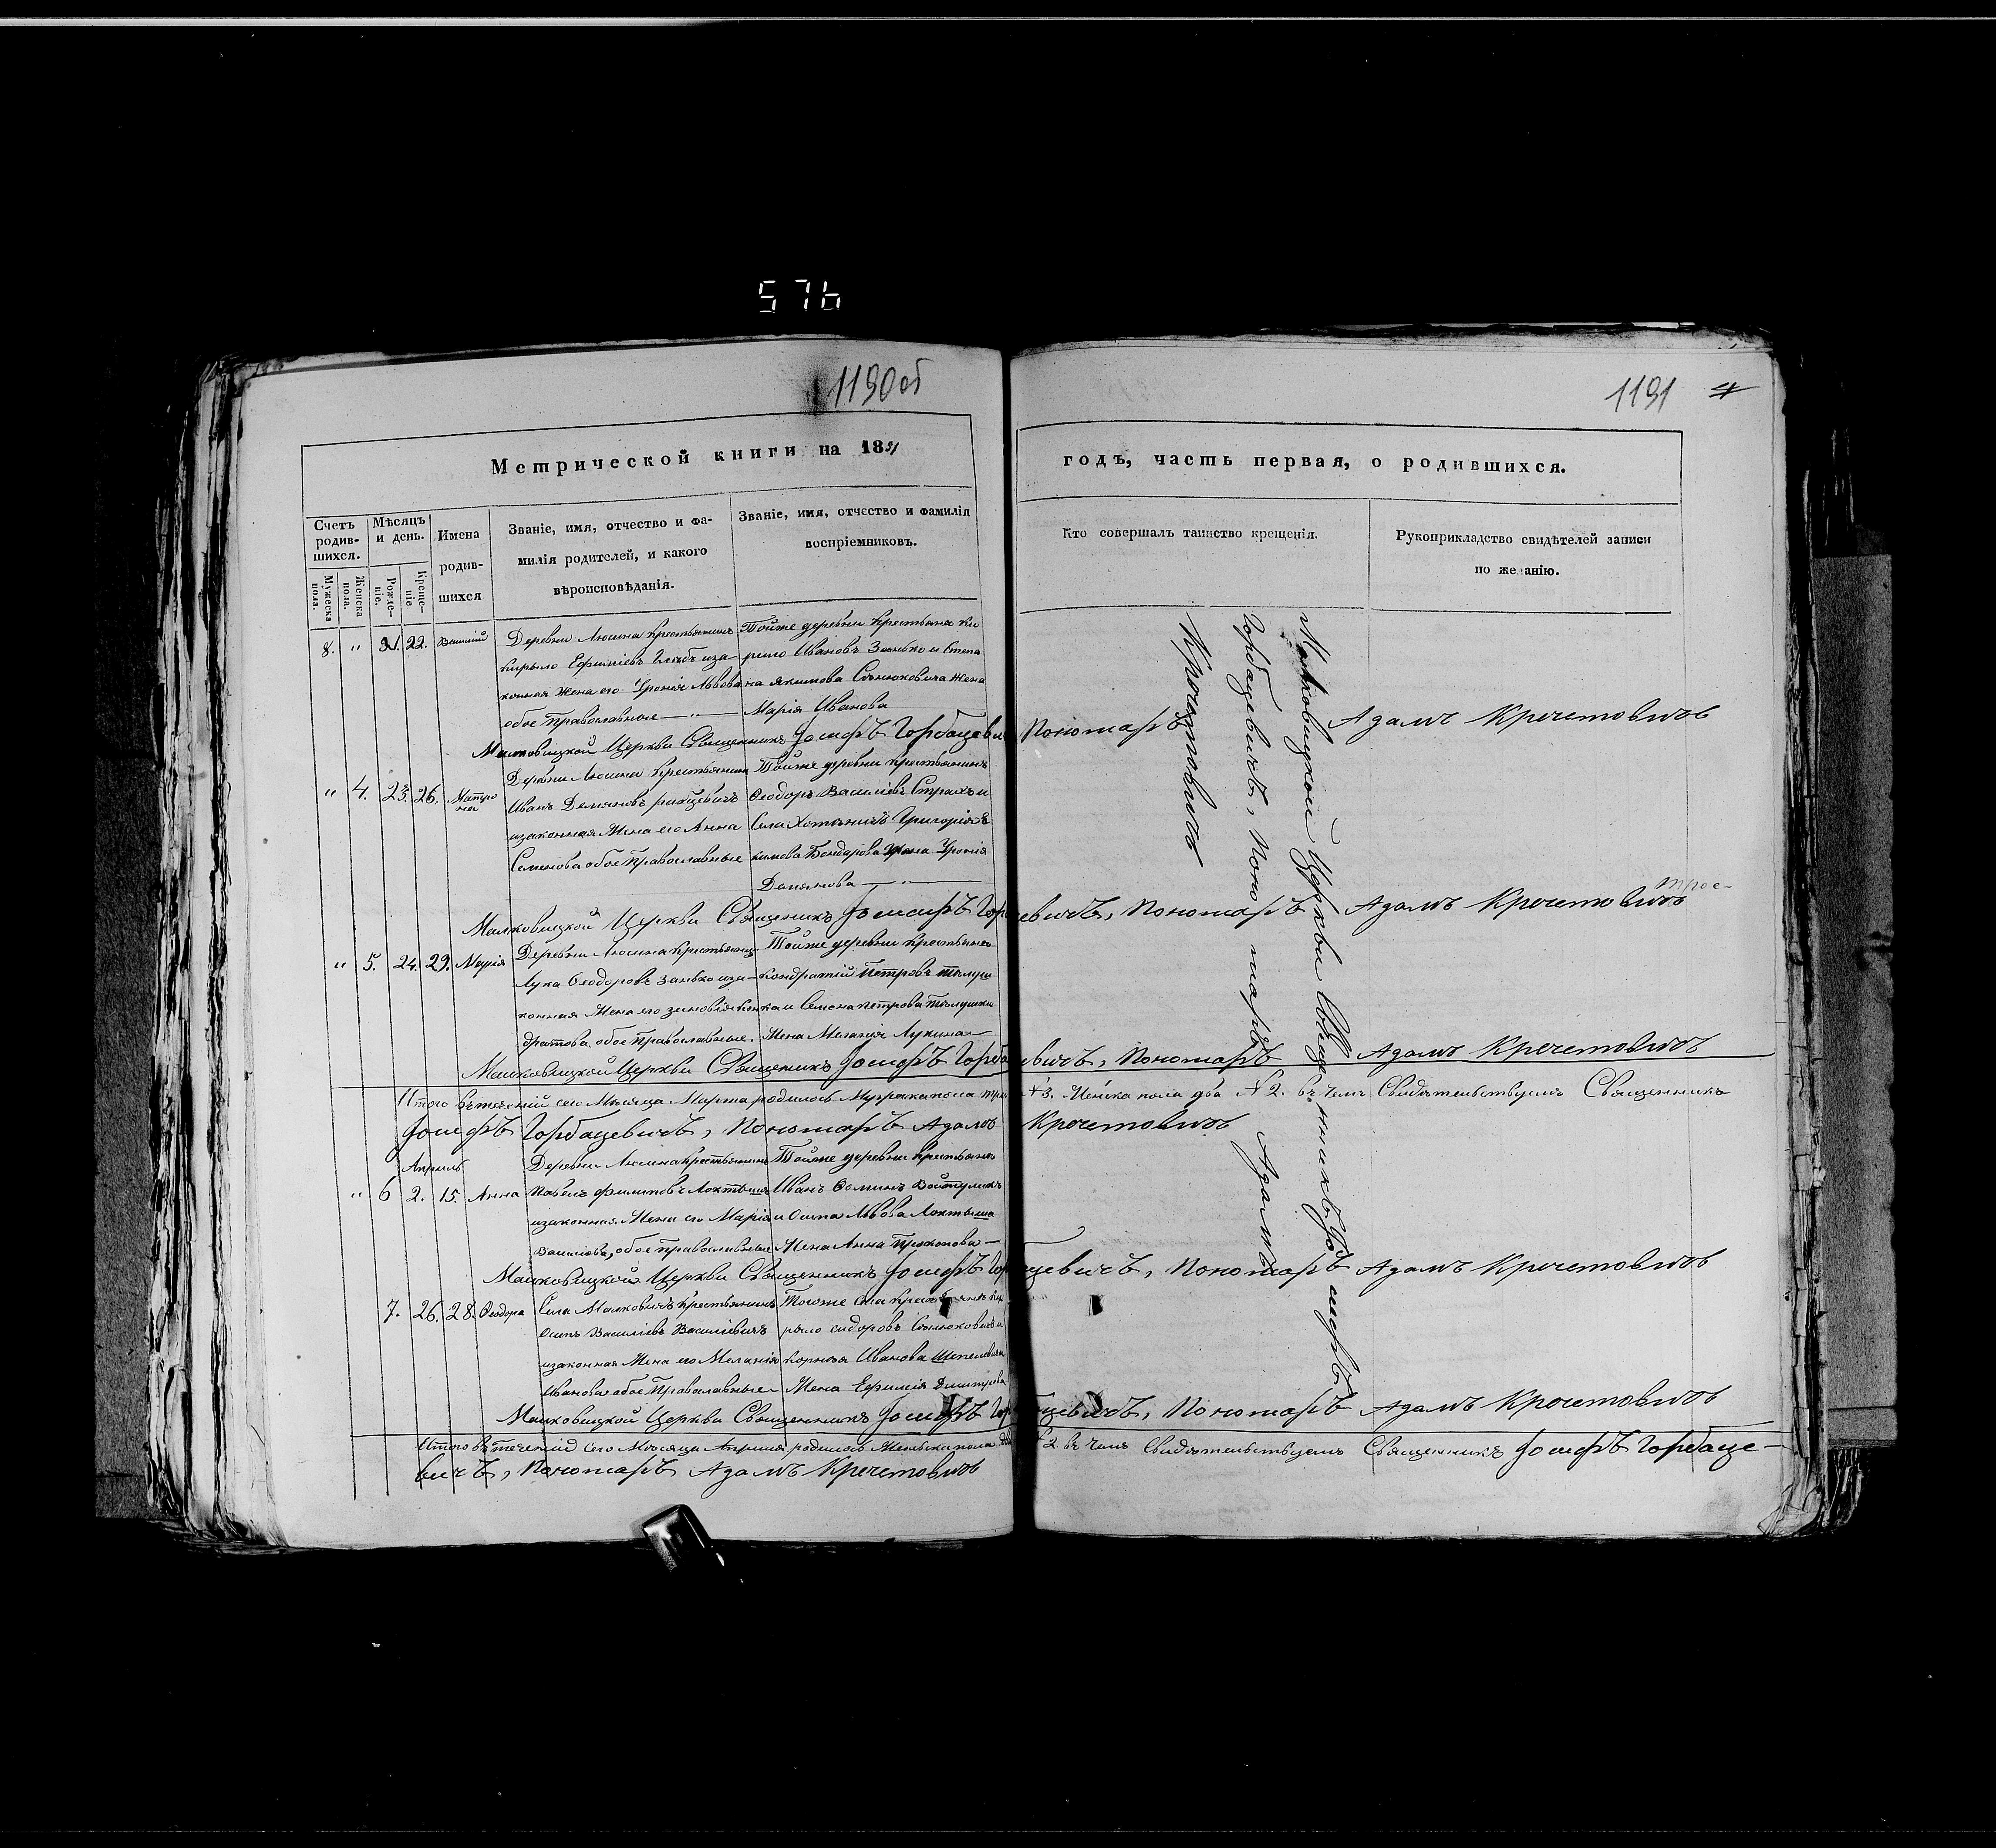 576
1190 об
1191
Метрической книги на 1851
годъ, часть первая, о родившихся.
Счетъ родив-шихся.
Мужеска пола.
Женска пола.
Мѣсяцъ и день.
Рожде-ніе.
Креще-ніе.
Имена родив-шихся
Званіе, имя, отчество и фа-
милія родителей, и какого
вѣроисповѣданія.
Званіе, имя, отчество и фамилія
воспріемниковъ.
Кто совершалъ таинство крещенія.
Рукоприкладство свидѣтелей записи
по желанію.
8. " 21. 22. Василій
Деревни Люсина Крестьянинъ
Кирыло Ефиміевъ иза-
конная Жена его Львова
обое Православные
Тойже деревни Крестьяне Ки
рило Ивановъ Занько и Степа
на Якимова Сенюковича Жена
Марія Иванова
Малковицкой Церкви Священникъ Іосифъ Горбацеви Пономарь Адамъ Кречетовичъ
" 4. 23. 26. Матро на
Деревни Люсина Крестьянинъ
Иванъ Демяновъ
изаконная Жена его Анна
Семенова обое Православные
Тойже деревни Крестьянинъ
Ѳеодоръ Василіевъ Страхъ и
Села Хотыничъ Григорія Я
кимова Бондарова Жена
Демянова
Малковицкой Церкви Священникъ Іосифъ Горбацевичъ, Пономарь Адамъ Кречетовичъ
" 5. 24. 29. Марія
Деревни Люсина Крестьянинъ
Лука Ѳеодоровъ Занько иза-
конная Жена его Зиновія Кон
дратова обое Православные.
Тойже деревни Крестьяне
Кондратій Петровъ
ка и Семена Петрова
Жена Меланія Лукина
Малковицкой Церкви Священникъ Іосифъ Горбацевичъ, Пономарь Адамъ Кречетовичъ
Итого въ теченій сего Мѣсяца Марта родилось Мужеска пола три №3. Женска пола два №2. въ чемъ Свидѣтельствуемъ Священникъ
Іосифъ Горбацевичъ, Пономарь Адамъ Кречетовичъ
Апрѣль
" 6 2. 15. Анна
Деревни Люсина Крестьянинъ
Павелъ Филиповъ Локтышъ
изаконная Жена его Марія
Василіева, обое православные
Тойже деревни Крестьяне
Иванъ Ѳоминъ Войтуликъ
и Осипа Львова Локтыша
Жена Анна Прокопова
Малковицкой Церкви Священникъ Іосифъ Горбацевичъ, Пономарь Адамъ Кречетовичъ
7. 26. 28. Ѳеодора
Села Малковичъ Крестьянинъ
Осипъ Василіевъ Василевичъ
изаконная Жена его Меланія
Иванова обое Православные
Тогоже села Крестьянинъ Ки
рыло Сидоровъ Сенюковичъ и
Корнея Иванова Шепелевича
Жена Ефимія Дмитрева
Малковицкой Церкви Священникъ Іосифъ Горбацевичъ, Пономарь Адамъ Кречетовичъ
Итого въ теченій сего Мѣсяца Апрѣля родилось Женска пола два №2. въ чемъ Свидѣтельствуемъ Священникъ Іосифъ Горбаце-
вичъ, Пономарь Адамъ Кречетовичъ
Малковицкой Церкви Священникъ Іосифъ
Горбацевичъ, Пономарь Адамъ
Кречетовичъ